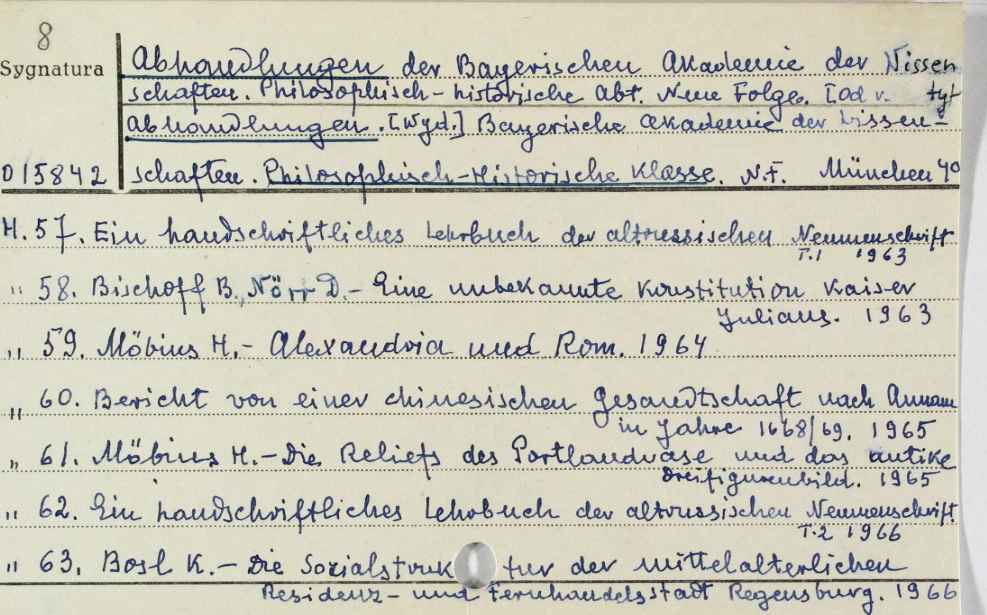 8
Sygnatura
Abhandlungen der Bayerischen Akademie der Wissen
schaften. Philosophisch-historische Abt. Neue Folge. [Od v. tyt
Abhandlungen. [Wyd.] Bayerische Akademie der Wissen-
D 15842 schaften. Philosophisch-Historische Klasse. N.F. München 4°
H. 57. Ein handschriftliches Lehrbuch der altrussischen Neumenschrift
T.1 1963
" 58. Bischoff B., Nörr D.- Eine unbekannte Konstitution Kaiser
Julians. 1963
" 59. Möbius H.- Alexandria und Rom. 1964
" 60. Bericht von einer chinesischen Gesandtschaft nach Annam
in Jahre 1668/69. 1965
" 61. Möbius H.- Die Reliefs des Portlandvase und das antike
Dreifigurenbild. 1965
" 62. Ein handschriftliches Lehrbuch der altrussischen Neumenschrift
T.2 1966
" 63. Bosl K.- Die Sozialstruktur der mittelalterlichen
Residenz- und Fernhandelsstadt Regensburg. 1966